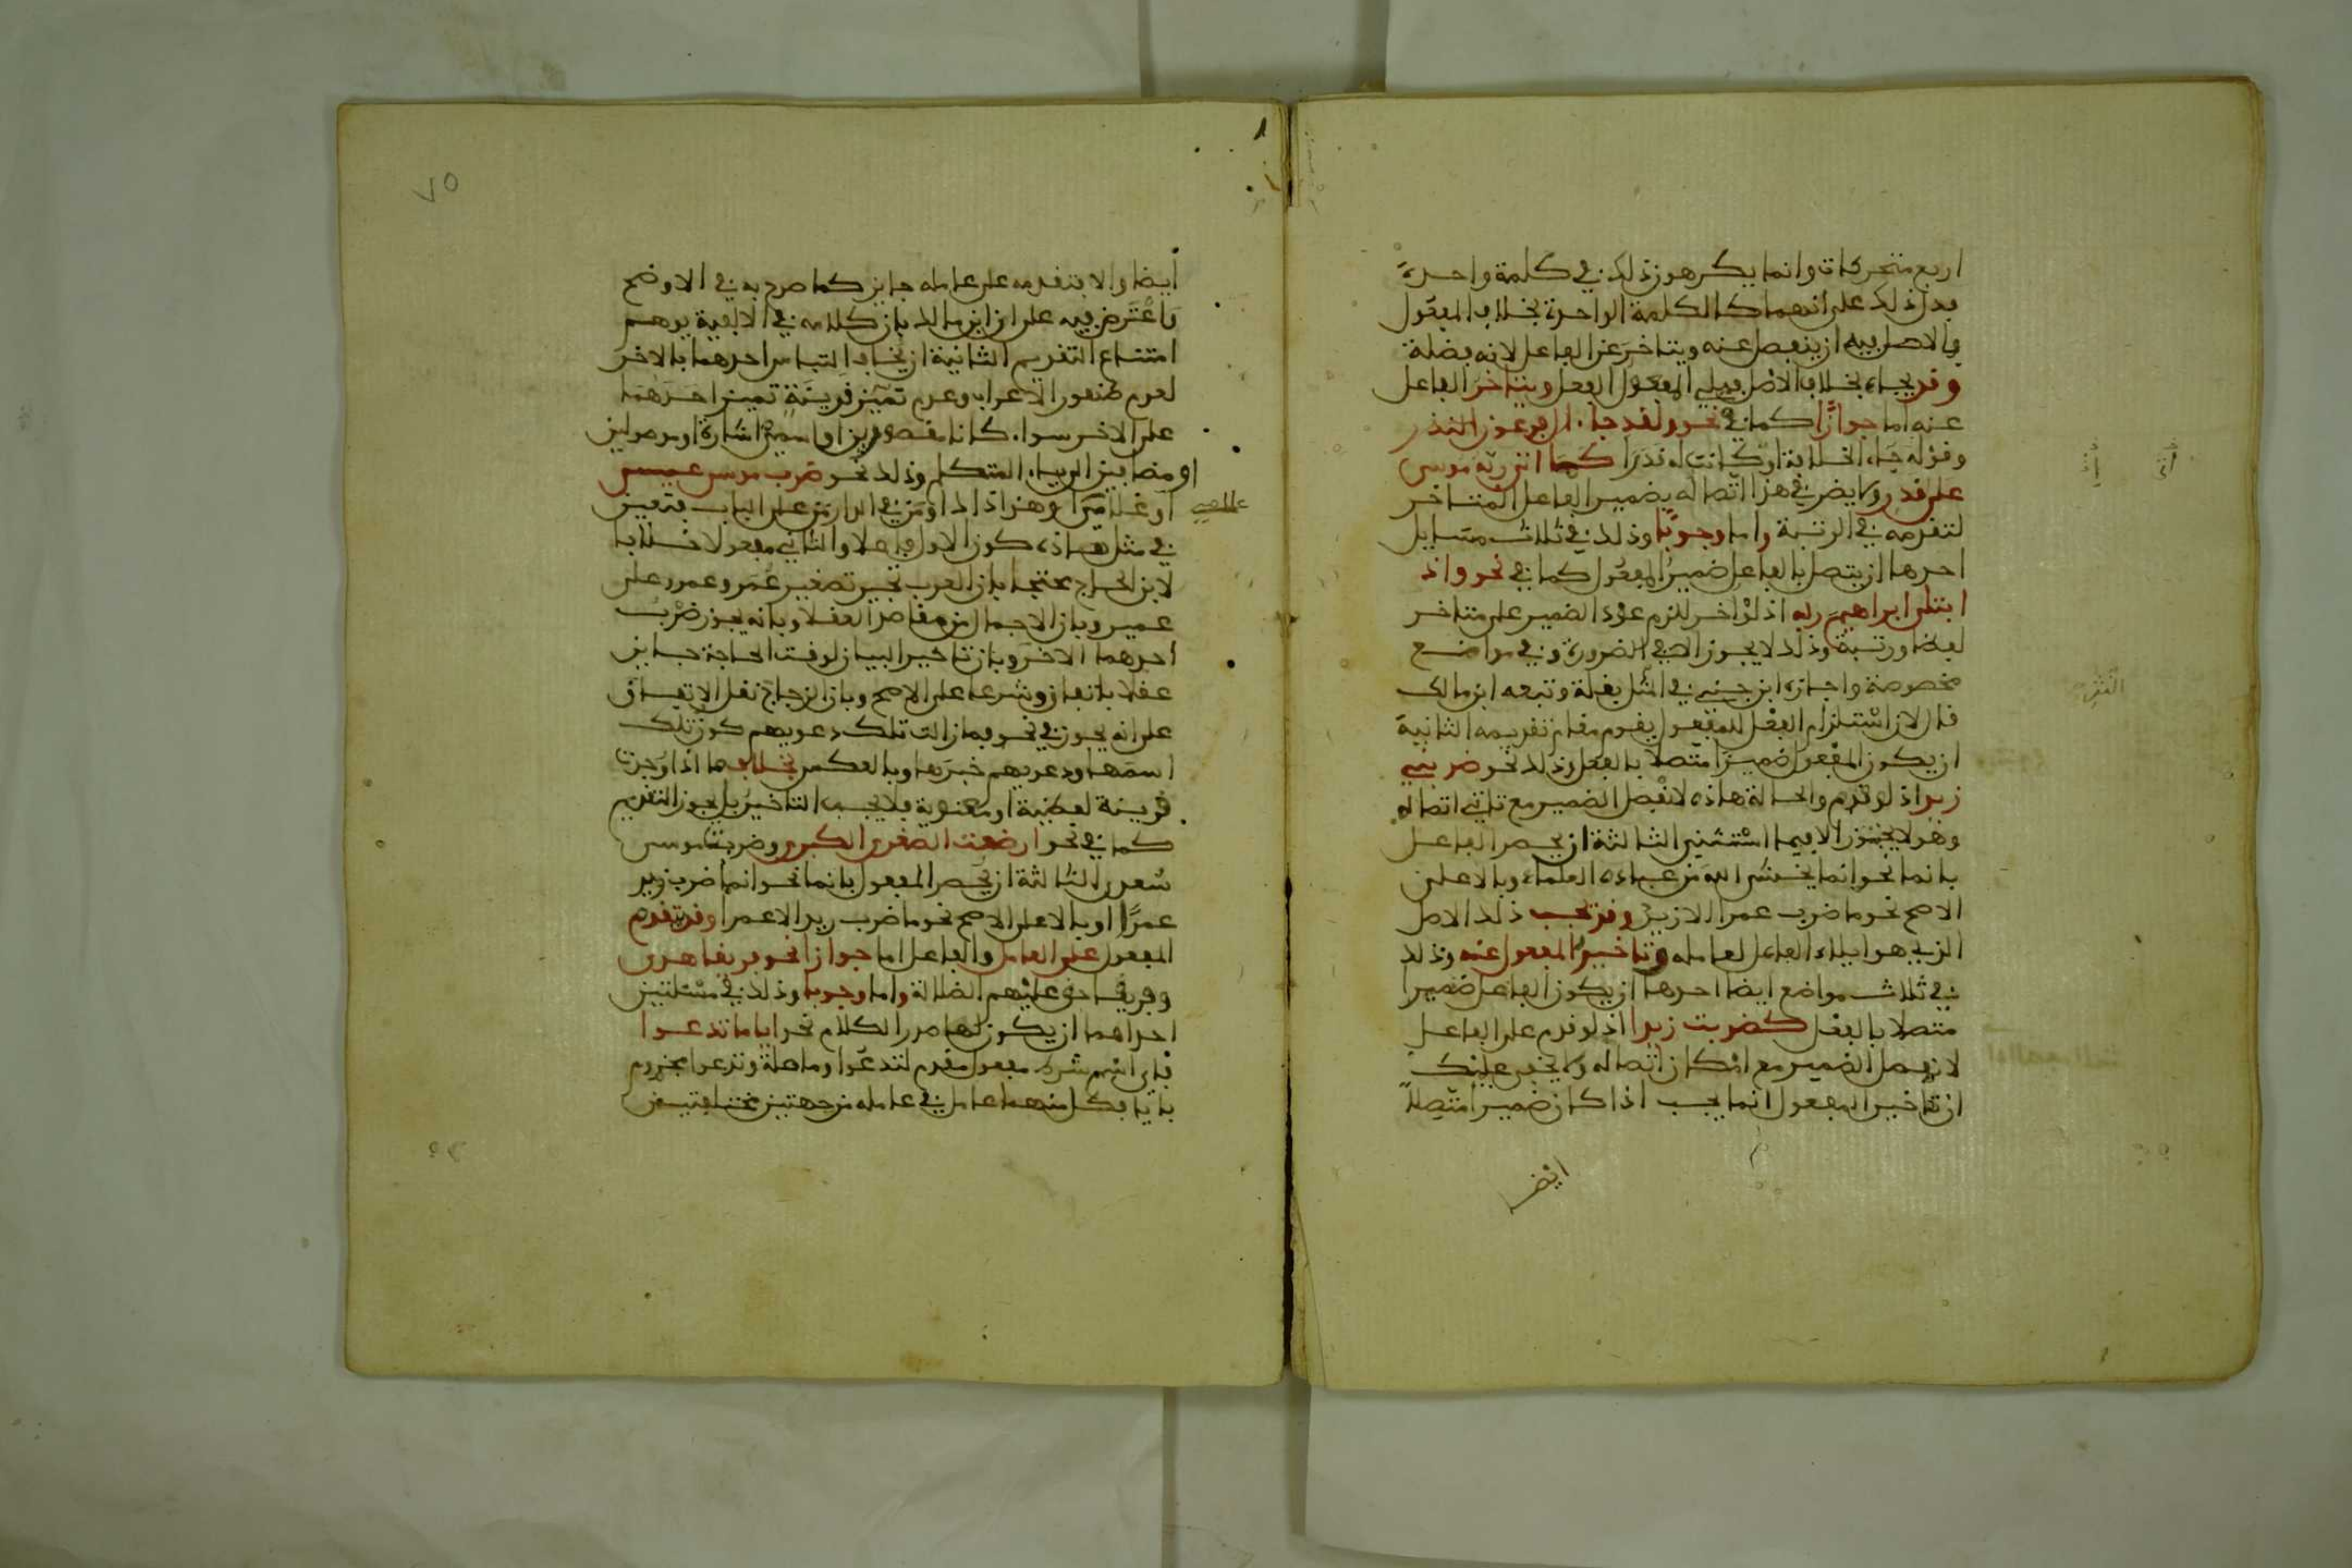 اربع متحركات وانما يكرهون ذلك في كلمة واحدة
فدل ذلك على انهما كالكلمة الواحدة بخلاف المفعول
فالاصل فيه ان ينفصل عنه ويتاخر عن الفاعل لانه فضلة
وقد يجاء بخلاف الاصل فيلي المفعول الفعل ويتاخر الفاعل
عنه اما جوازا كما في نحو ولقد جاء ال فرعون النذر
وقوله جاء الخلافة او كانت له قدرا كما اتى ربه موسى
على قدر ولا يضر في هذا اتصاله بضمير الفاعل المتاخر
لتقدمه في الرتبة واما وجوبا وذلك في ثلاث مسايل
احدها ان يتصل بالفاعل ضمير المفعول كما في نحو واذ
ابتلى ابراهيم ربه اذ لو اخر للزم عود الضمير على متاخر
لفظا ورتبة وذلك لا يجوز الا في الضرورة وفي مواضع
مخصوصة واجازه ابن جني في النثر بقلة وتبعه ابن مالك
قال لان استلزام الفعل للمفعول يقوم مقام تقديمه الثانية
ان يكون المفعول ضميرا متصلا بالفعل وذلك نحو ضربني
زيد اذ لو قدم والحالة هاذه لانفصل الضمير مع تاتي اتصاله
وهو لا يجوز الا فيما استثني الثالثة ان يحصر الفاعل
بانما نحو انما يخشى الله من عباده العلماء وبالا على
الاصح نحو ما ضرب عمرا الا زيد وقد يجب ذلك الاصل
الذي هو ايلاء الفاعل لعامله وتاخير المفعول عنه وذلك
في ثلاث مواضع ايضا احدها ان يكون الفاعل ضميرا
متصلا بالفعل كضربت زيدا اذ لو قدم على الفاعل
لانفصل الضمير مع امكان اتصاله ولا يخفى عليك
ان تاخير المفعول انما يجب اذا كان ضميرا متصلا
ايضا
النثر
٧٥
ايضا والا فتقدمه على عامله جايز كما صرح به في الاوضح
واعترض فيه على ابن مالك بان كلامه في الالفية يوهم
امتناع التقديم الثانية ان يخاف التباس احدهما بالاخر
لعدم ظهور الاعراب وعدم قرينة تميز احدهما
على الاخر سواء كانا مقصورين او اسمي اشارة او موصولين
او مضافين الى ياء المتكلم وذلك نحو ضرب موسى عيسى
او غلامي هذا ذا او من في الدار من على الباب فتعين
في مثل هاذه كون الاول فاعلا والثاني مفعولا خلافا
لابن الحاج محتجا بان العرب تجيز تصغير عمر وعمرو على
عمير وبان الاجمال من مقاصد العقلاء وبانه يجوز ضرب
احدهما الاخر وبان تاخير البيان لوقت الحاجة جايز
عقلا باتفاق وشرعا على الاصح وبان الزجاج نقل الاتفاق
على انه يجوز في نحو فما زالت تلك دعويهم كون تلك
اسمها ودعويهم خبرها وبالعكس بخلاف ما اذا وجدت
قرينة لفظية او معنوية فلا يجب التاخير بل يجوز التقديم
كما في نحو ارضعت الصغرى الكبرى وضربت موسى
سعدى الثالثة ان يحصر المفعول بانما نحو انما ضرب زيد
عمرا او بالا على الاصح نحو ما ضرب زيد الا عمرا وقد يتقدم
المفعول على العامل والفاعل اما جوازا نحو فريقا هدى
وفريقا حق عليهم الضلالة واما وجوبا وذلك في مسئلتين
احداهما ان يكون لها صدر الكلام نحو ايا ما تدعوا
فاي اسم شرط مفعول مقدم لتدعوا وما صلة وتدعوا مجزوم
باي فكل منهما عامل في عامله من جهتين مختلفتين